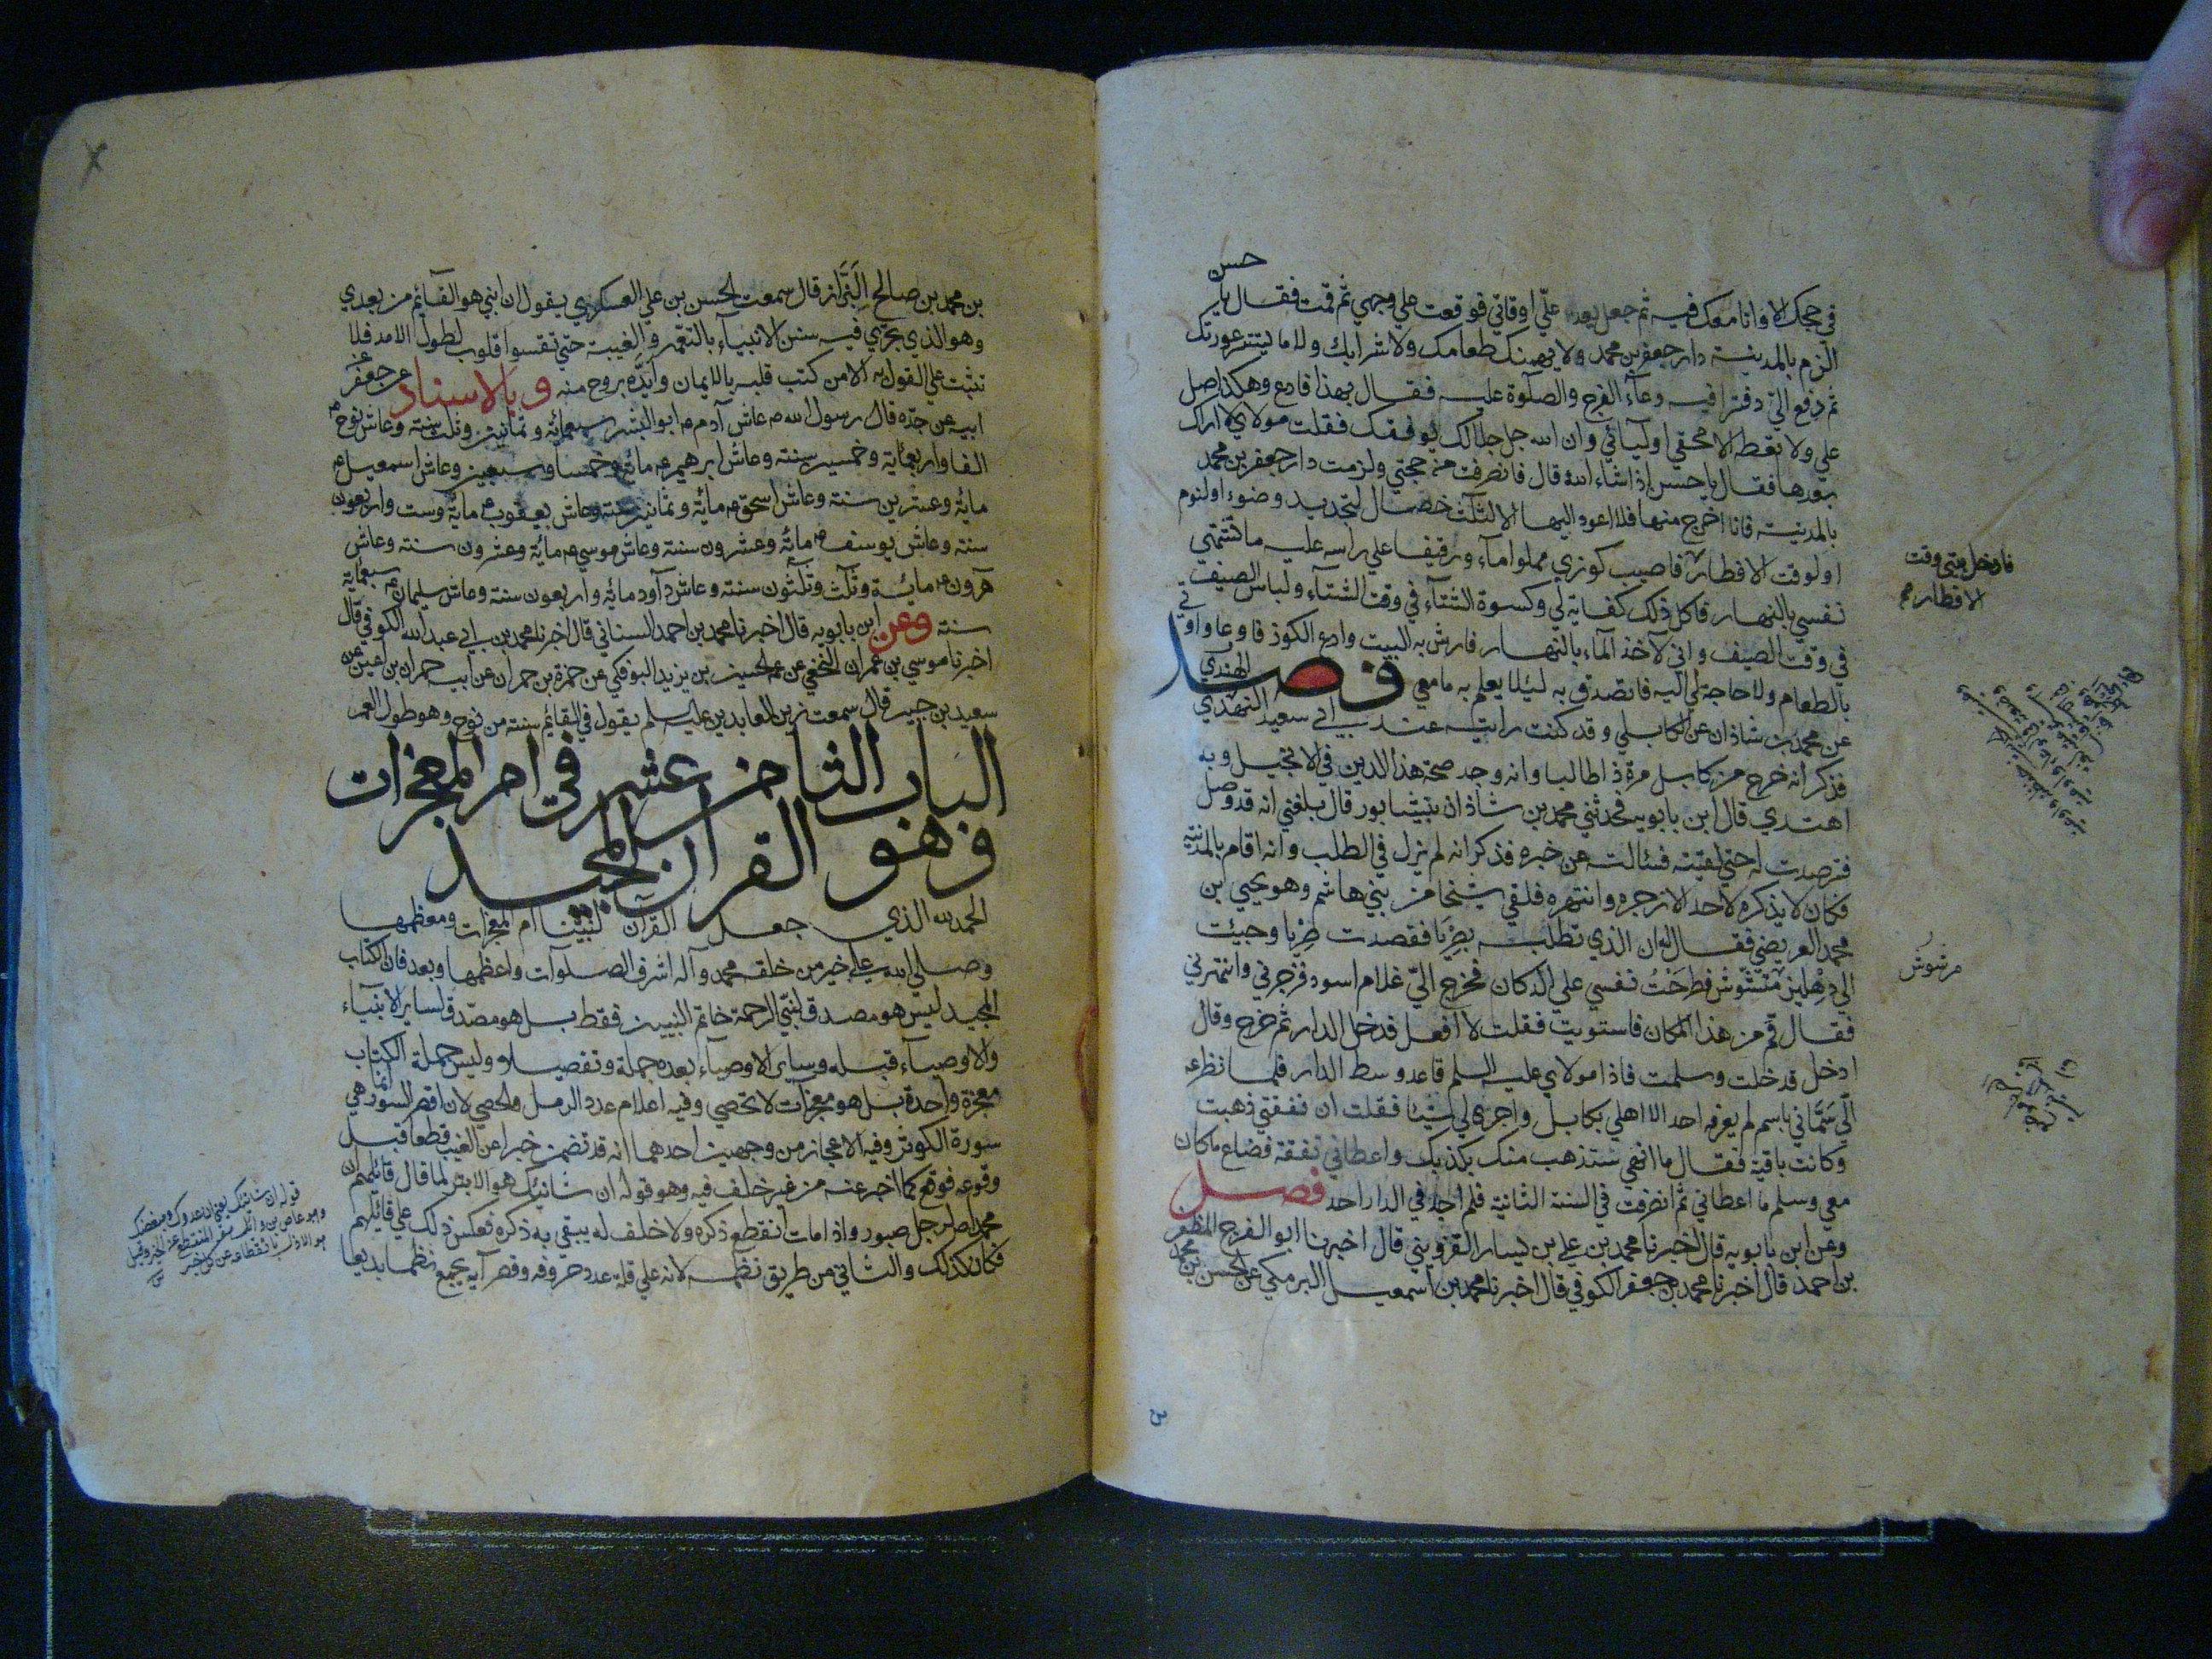 حسن
في حجك الا وانا معك فيه ثم جعل يعد علّي اوقاتي فوقعت علي وجهي ثم قمت فقال يا
الزم بالمدينة دار جعفر بن محمد ولا يهمنك طعامك ولا شرابك ولا ما يستر عورتك
ثم دفع الىّ دفترا فيه دعآء الفرج والصلٰوة عليه فقال بهذا فادع وهكذا صل
علي ولا تعطه الا محقي اوليآئي وان الله جل جلاله يوفقك فقلت مولاي لا اراك
بعدها فقال يا حسن اذا شاء الله قال فانصرفت من حجتي ولزمت دار جعفر بن محمد
بالمدينة فانا اخرج منها فلا اعود اليها الا لثلث خصال لتجديد وضوء او لنوم
او لوقت الافطار فاصيب كوزي مملوا مآء ورغيفا علي راسه عليه ما تشتهي
نفسي بالنهار فاكل ذلك كفاية لي وكسوة الشتآء في وقت الشتآء ولباس الصيف
في وقت الصيف واني لآخذ المآء بالنهار فارش به البيت وادع الكوز فارغا واوتي
بالطعام ولا حاجة لي اليه فاتصدق به لئلا يعلم به ما معي فصل الهندي
عن محمد بن شاذان عن الكابلي وقد كنت رايته عند ابي سعيد النهدي
فذكر انه خرج من كابل مرتادا طالبا وانه وجد صحة هذا الدين في الانجيل وبه
اهتدي قال ابن بابويه فحدثني محمد بن شاذان بنيشابور قال بلغني انه قد وصل
فترصدت له حتي لقيته فسئالته عن خبره فذكر انه لم يزل في الطلب وانه اقام بالمدينة
فكان لا يذكره لاحد الا زجره وانتهره فلقي شيخا من بني هاشم وهو يحيي بن
محمد العريضي فقال له ان الذي تطلبه بصِرْيا فقصدت صِرْيا وجيئت
الي دهليز مرشوش فطرحْتُ نفسي علي الدكان فخرج اليّ غلام اسود فزجرني وانتهرني
فقال قم من هذا المكان فاستويت فقلت لا افعل فدخل الدار ثم خرج وقال
ادخل فدخلت وسلمت فاذا مولاي عليه السلم قاعد وسط الدار فلما نظر
الّي سَمّاني باسم لم يعرفه احد الا اهلي بكابل واجري لي شيئا فقلت ان نفقتي ذهبت
وكانت باقية فقال ما انهي ستذهب منك بكذبك واعطاني نفقة فضاع ما كان
معي وسلم ما اعطاني ثم انصرفت في السنة الثانية فلم اجد في الدار احد فصل
وعن ابن بابويه قال اخبرنا محمد بن علي بن يسار القزويني قال اخبرنا ابو الفرج المظفر
بن احمد قال اخبرنا محمد بن جعفر الكوفي قال اخبرنا محمد بن اسمعيل البرمكي عن الحسن بن محمد
فادخل بيتي وقت
الافطار
مرشوش
بن محمد بن صالح البَزّاز قال سمعت الحسن بن علي العسكري يقول ان ابني هو القآئم من بعدي
وهو الذي يجري فيه سنن الانبيآء بالتعمّر والغيبة حتي تقسوا قلوب لطول الامد فلا
تثبت علي القول به الا من كتب قلبه بالايمان وايّده بروح منه وبالاسناد عن جعفر عن
ابيه عن جده قال رسول الله عاش آدم ابو البشر سبعمائة وثمانين وثلث سنة وعاش نوح
الفا واربعمائة وخمسين سنة وعاش ابرهيم مائة وخمسا وسبعين وعاش اسمعيل
مائة وعشرين سنة وعاش اسحق مائة وثمانين سنة وعاش يعقوب مائة وست واربعون
سنة وعاش يوسف مائة وعشرون سنة وعاش موسي مائة وعشرون سنة وعاش
هرون مائة وثلث وثلثون سنة وعاش داود مائة واربعون سنة وعاش سليمان سبعمائة
سنة وعن ابن بابويه قال اخبرنا محمد بن احمد السناني قال اخبرنا محمد بن ابي عبد الله الكوفي قال
اخبرنا موسي بن عمران النخعي عن عمه الحسين بن يزيد النوفلي عن حمزة بن حمران عن ابيه حمران بن اعين عن
سعيد بن جبير قال سمعت زين العابدين عليه السلم يقول في القائم سنة من نوح وهو طول العمر
الباب الثامن عشر في ام المعجزات
وهو القرآن المجيد
الحمد لله الذي جعل القرآن لنبيّنا ام المعجزات ومعظمها
وصلى الله علي خير من خلقه محمد وآله اشرف الصلوات واعظمها وبعد فان الكتاب
المجيد ليس هو مصدق لنبّي الرحمة خاتم النبيين فقط بل هو مصدّق لساير الانبيآء
والاوصيآء قبله وساير الاوصيآء بعده جملة وتفصيلا وليس جملة الكتاب
معجزة واحدة بل هو معجزات لا تحصي وفيه اعلام عدد الرمل والحصي لان اقصر السور انما هي
سورة الكوثر وفيه الاعجاز من وجهين احدهما انه قد تضمن خبرا عن الغيب قطعا قبل
وقوعه فوقع كما اخبر عنه من غير خلف فيه وهو قوله ان شانئك هو الابتر لما قال قائلهم ان
محمدا صلي رجل صبور واذا مات انقطع ذكره ولا خلف له يبقي به ذكره فعكس ذلك علي قائلهم
فكان كذلك والثاني من طريق نظمه لانه علي قلة عدد حروفه وقصر آيه يجمع نظما بديعا
قوله ان شانئك يعني ان عدوك ومبغضك
وهو عاص بن وائل هو المنقطع عن الخير وقيل
هو الاذل بانقطاعه عن كل خير